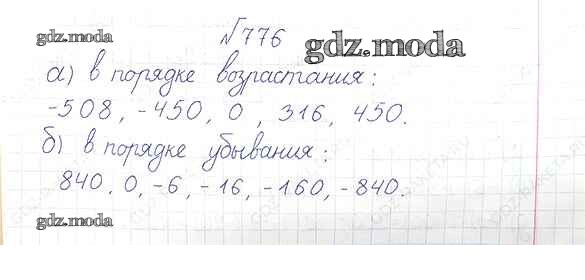 gdz.moda
√776
gdz.moda
а) в порядке возрастания:
-508, -450, 0, 316, 450.
б) в порядке убывания:
840, 0, -6, -16, -160, -840.
gdz.moda